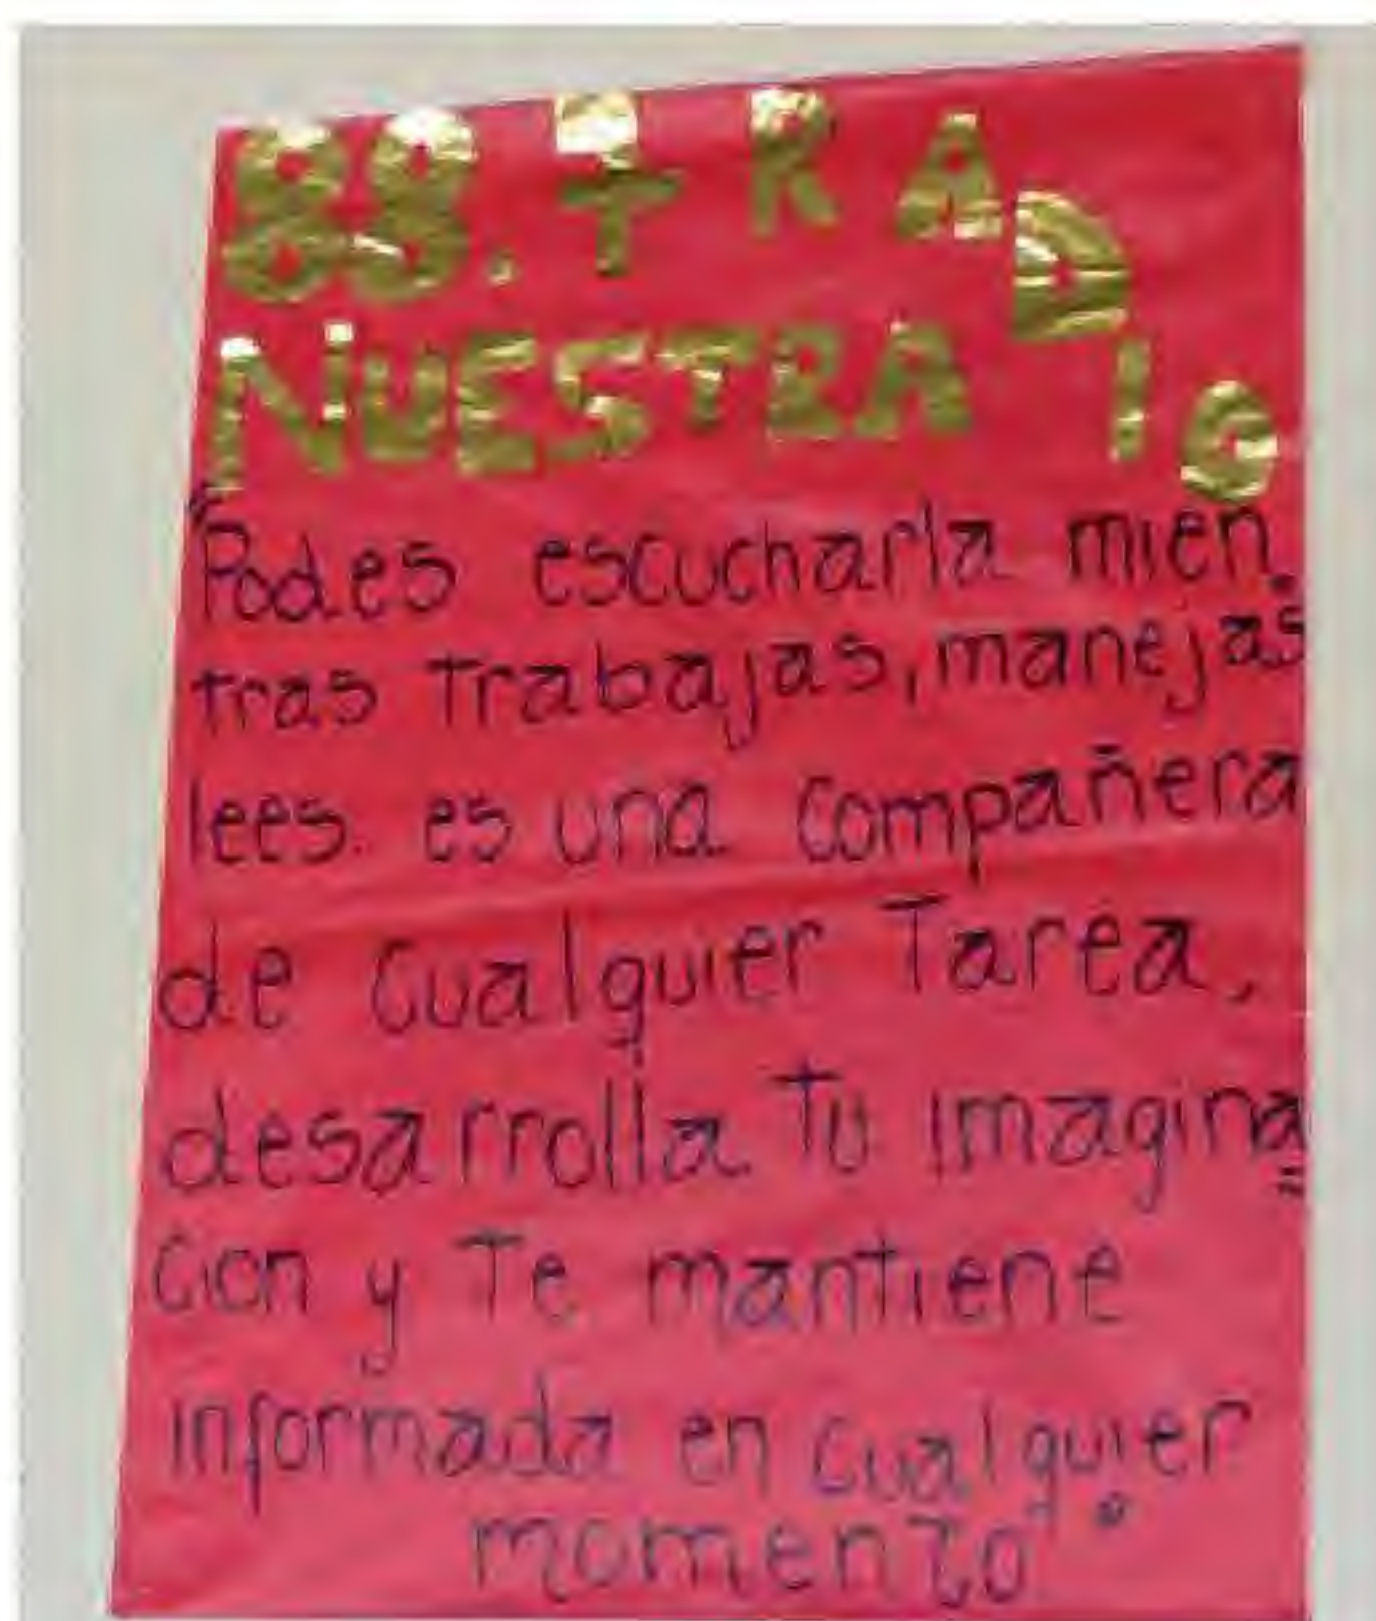 88.7 RADIO
NUESTRA
"Podes escucharla mien.
tras Trabajas, manejas
lees. es una Compañera
de Cualquier Tarea,
desarrolla Tu imagina
Cion y Te mantiene
informada en Cualquier
momento".